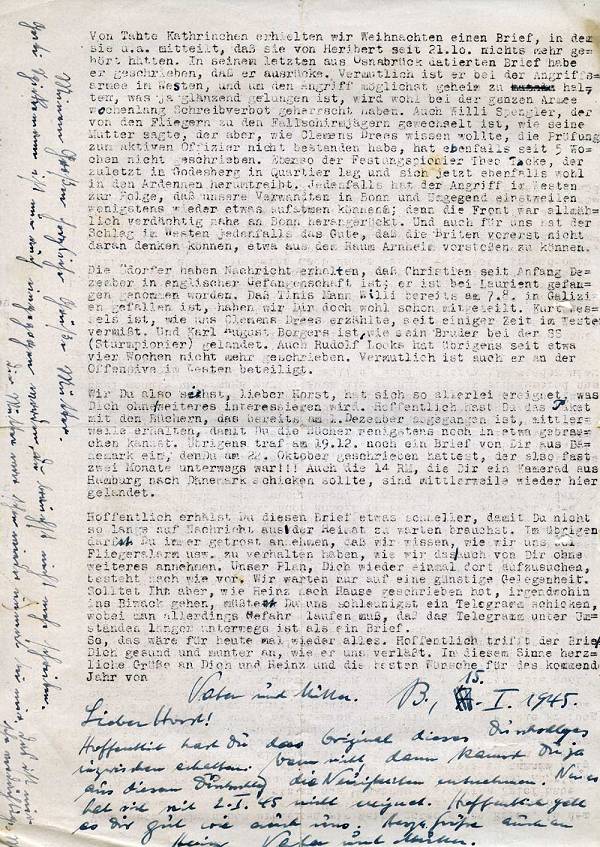 Von Tante Kathrinchen erhielten wir Weihnachten einen Brief, in dem
sie u.a. mitteilt, daß sie von Heribert seit 21.10. nichts mehr ge-
hört hätten. In seinem letzten aus Osnabrück datierten Brief habe
er geschrieben, daß er ausrücke. Vermutlich ist er bei der Angriffs-
armee im Westen, und um den Angriff möglichst geheim zu hal-
ten, was ja glänzend gelungen ist, wird wohl bei der ganzen Armee
wochenlang Schreibverbot geherrscht haben. Auch Willi Spengler, der
von den Fliegern zu den Fallschirmjägern gewechselt ist, wie seine
Mutter sagte, der aber, wie Clemens Drees wissen wollte, die Prüfung
zum aktiven Offizier nicht bestanden habe, hat ebenfalls seit 5 Wo-
chen nicht geschrieben. Ebenso der Festungspionier Theo Tacke, der
zuletzt in Godesberg in Quartier lag und sich jetzt ebenfalls wohl
in den Ardennen herumtreibt. Jedenfalls hat der Angriff im Westen
zur Folge, daß unsere Verwandten in Bonn und Umgegend einstweilen
wenigstens wieder etwas aufatmen können; denn die Front war allmäh-
lich verdächtig nahe an Bonn herangerückt. Und auch für uns ist der
Schlag im Westen jedenfalls das Gute, daß die Briten vorerst nicht
daran denken können, etwa aus dem Raum Arnheim vorstoßen zu können.
Die Üdorfer haben Nachricht erhalten, daß Christian seit Anfang De-
zember in englischer Gefangenschaft ist; er ist bei Laurient gefan-
gen genommen worden. Daß Tinis Mann Willi bereits am 7.8. in Galizi
en gefallen ist, haben wir Dir doch wohl schon mitgeteilt. Kurt
ist, wie uns Clemens Drees erzählte, seit einiger Zeit im Westen
vermißt. Und Karl August Borgers ist wie sein Bruder bei der SS
(Sturmpionier) gelandet. Auch Rudolf Looks hat übrigens seit etwa
vier Wochen nicht mehr geschrieben. Vermutlich ist auch er an der
Offensive im Westen beteiligt.
Wir Du also siehst, lieber Horst, hat sich so allerlei ereignet, was
Dich ohne weiteres interessieren wird. Hoffentlich hast Du das Paket
mit den Büchern, das bereits am 1.Dezember abgegangen ist, mittler-
weile erhalten, damit Du die Bücher wenigstens noch in etwa gebrau-
chen kannst. Übrigens traf am 19.12. noch ein Brief von Dir aus Dä-
nemark ein, den Du am 22. Oktober geschrieben hattest, der also fast
zwei Monate unterwegs war!!! Auch die 14 RM, die Dir ein Kamerad aus
Hamburg nach Dänemark schicken sollte, sind mittlerweile wieder hier
gelandet.
Hoffentlich erhälst Du diesen Brief etwas schneller, damit Du nicht
so lange auf Nachricht aus der Heimat zu warten brauchst. Im übrigen
darfst Du immer getrost annehmen, daß wir wissen, wie wir uns bei
Fliegeralarm usw. zu verhalten haben, wie wir das auch von Dir ohne
weiteres annehmen. Unser Plan, Dich wieder einmal dort aufzusuchen,
besteht nach wie vor. Wir warten nur auf eine günstige Gelegenheit.
Solltet Ihr aber, wie Heinz nach Hause geschrieben hat, irgendwohin
ins Biwack gehen, müßtest Du uns schleunigst ein Telegramm schicken,
wobei man allerdings Gefahr laufen muß, daß das Telegramm unter Um-
ständen länger unterwegs ist als ein Brief.
So, das wäre für heute mal wieder alles. Hoffentlich trifft der Brief
Dich gesund und munter an, wie er uns verläßt. In diesem Sinne herz-
liche Grüße an Dich und Heinz und die besten Wünsche für das kommende
Jahr von
Vater und Mutter. B., 15.-I. 1945.
Lieber Horst!
Hoffentlich hast Du das Original dieses Durchschlages
inzwischen erhalten. Wenn nicht, dann kannst Du ja
aus diesem Durchschlag die Neuigkeiten entnehmen. Neues
hat sich seit 2.1.45 nicht ereignet. Hoffentlich geht
es Dir gut wie auch uns. Herzl. Grüße auch an
Heinz Vater und Mutter.
Meinem Großen herzliche Grüße Mutter